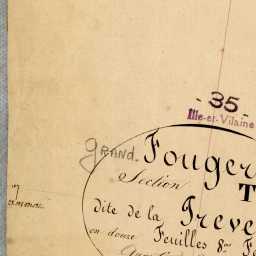 - 35 -
Ille-et-Vilaine
GRAND. Fouger
Section T
dite de la Treve
en douze Feuilles 8me Fe